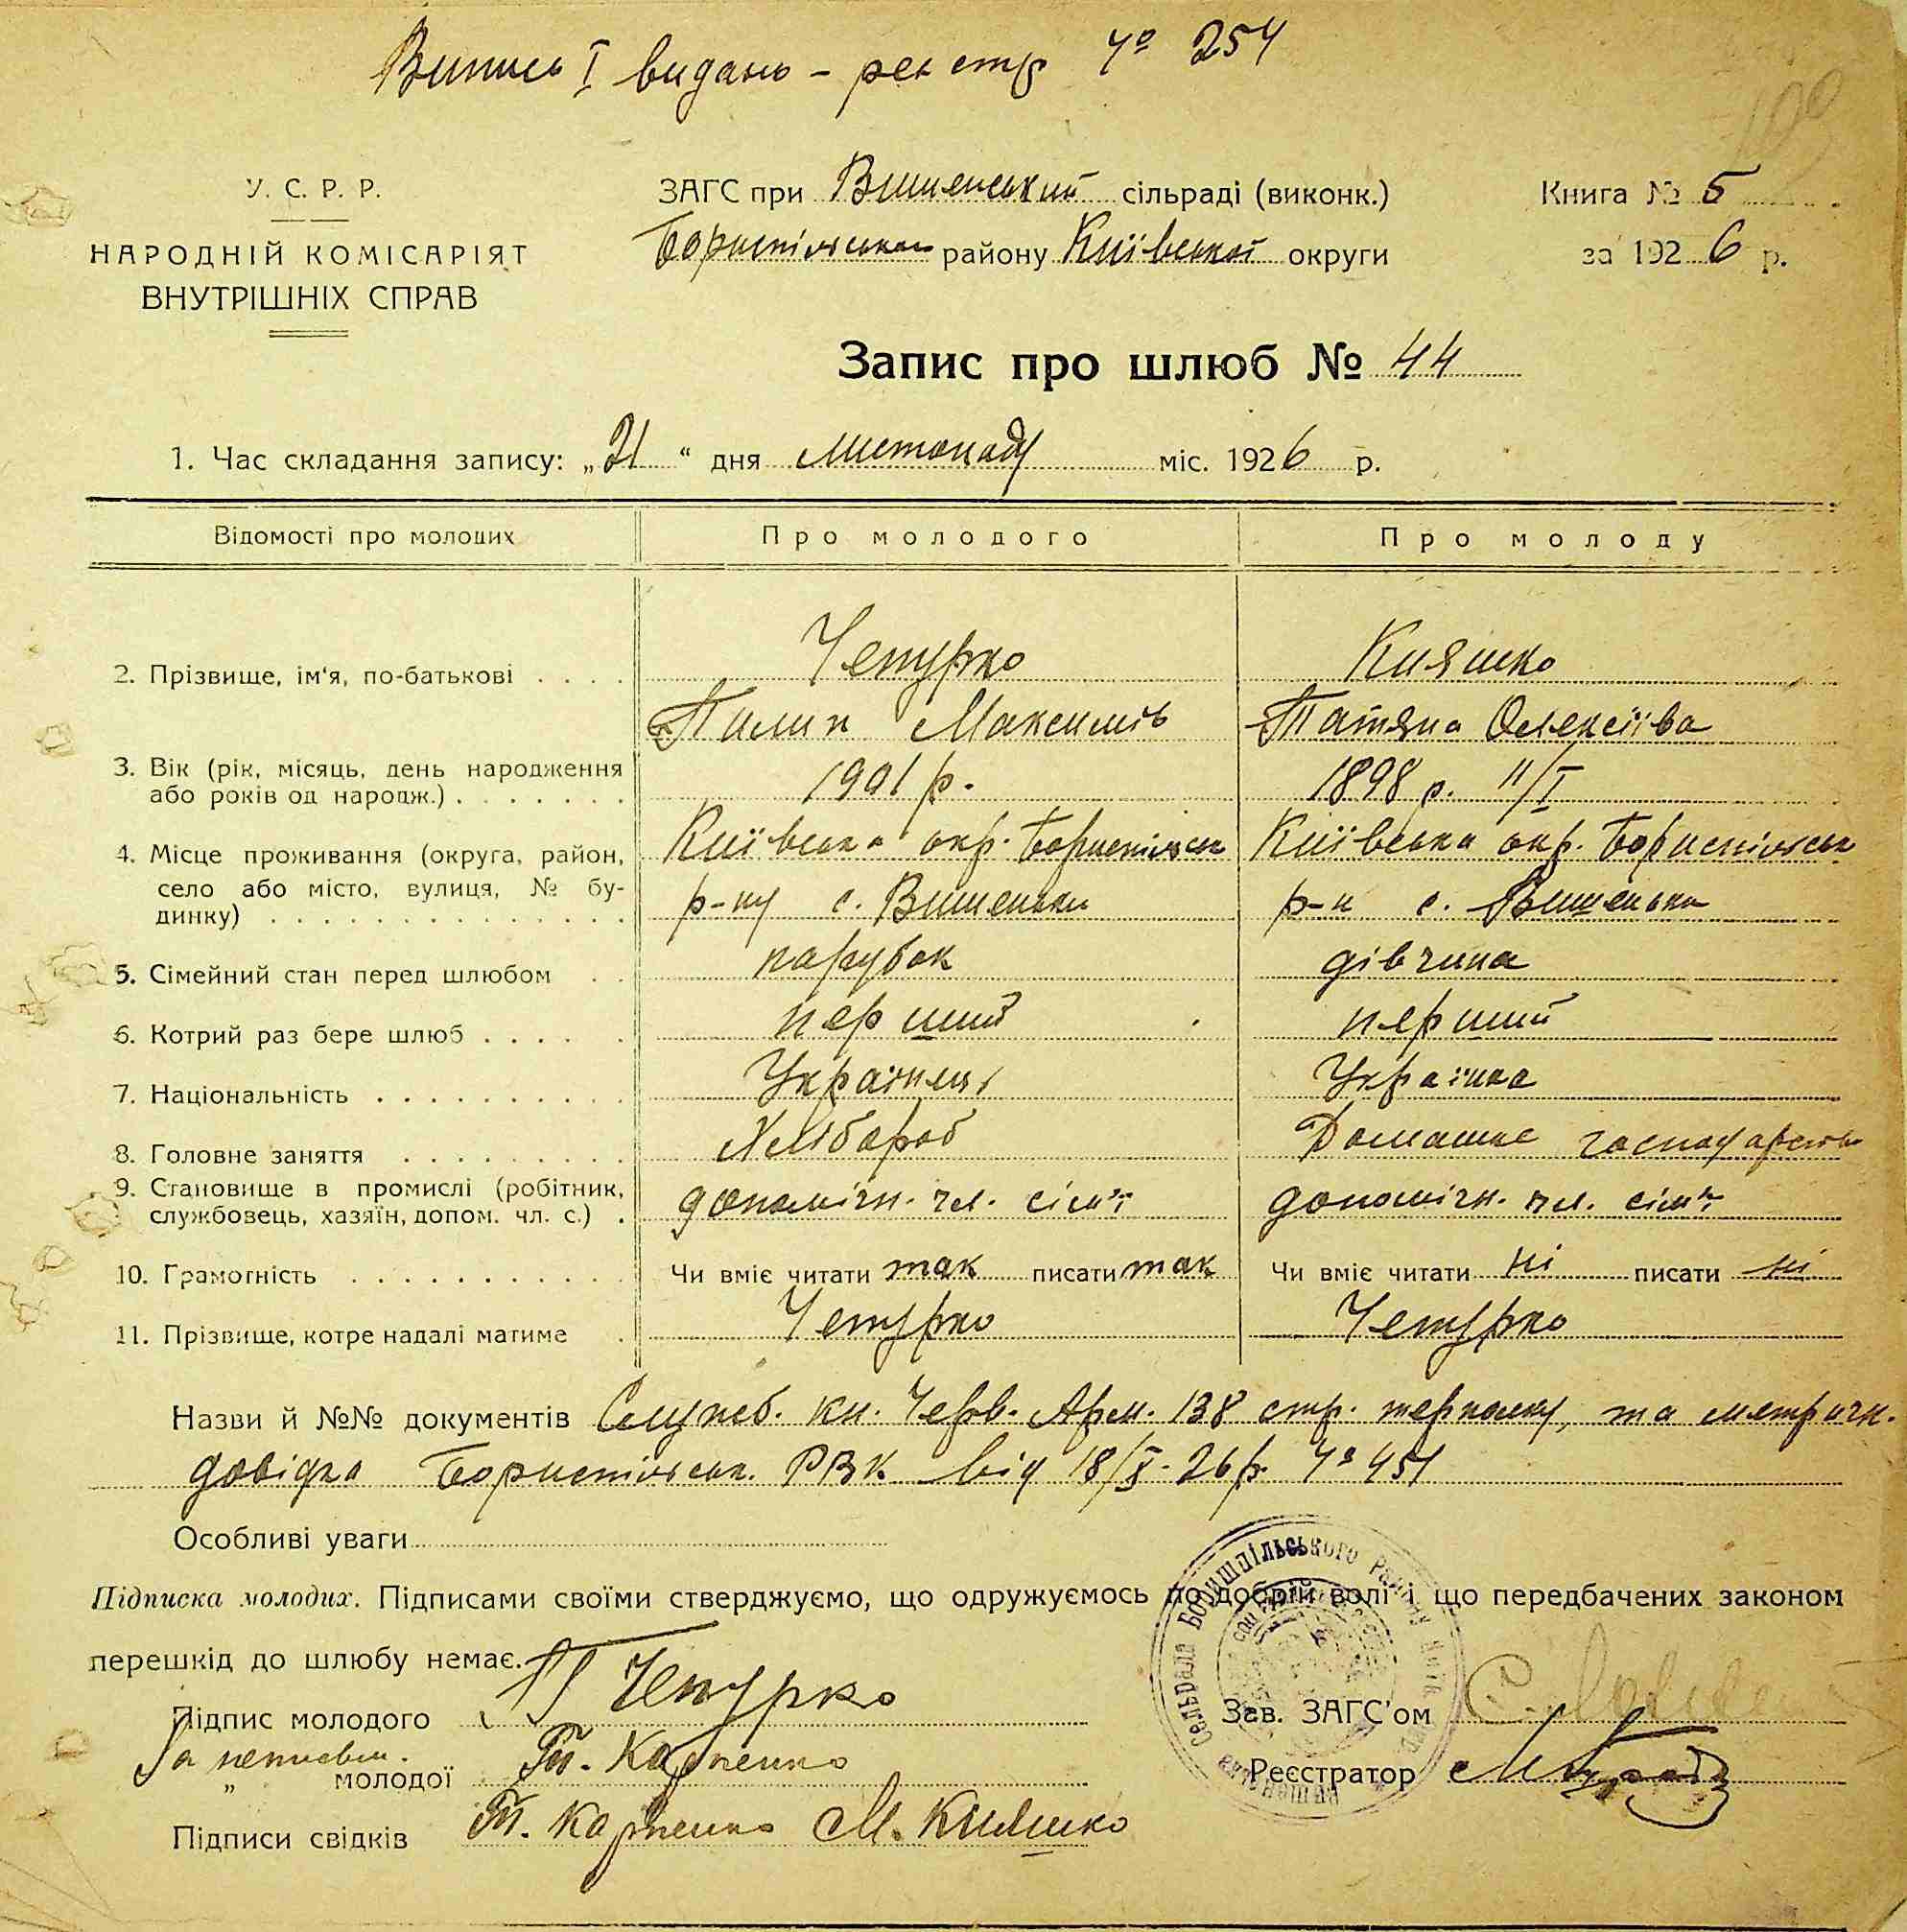 Випись I видань - реєстр № 254
У. С. Р. Р.
НАРОДНІЙ КОМІСАРІЯТ
ВНУТРІШНІХ СПРАВ
ЗАГС при Вишенський сільраді (виконк.)
Бориспільськ району Київської округи
Книга № 5
за 1926 р.
Запис про шлюб № 44
1. Час складання запису: „21“ дня листопаду міс. 1926 р.
Відомості про молодих
Про молодого
Про молоду
2. Прізвище, ім'я, по-батькові
Чепурко
Пилип Максимів
Кияшко
Татяна Олексіїва
3. Вік (рік, місяць, день народження
або років од народж.)
1901 р.
1898 р. 11/I
4. Місце проживання (округа, район,
село або місто, вулиця, № бу-
динку)
Київська окр. Бориспільськ
р-ну с. Вишеньки
Київська окр. Бориспільськ
р-н с. Вишеньки
5. Сімейний стан перед шлюбом
парубок
дівчина
6. Котрий раз бере шлюб
перший
перший
7. Національність
Українець
Українка
8. Головне заняття
Хлібороб
Домашнє господарство
9. Становище в промислі (робітник,
службовець, хазяїн, допом. чл. с.)
допоміжн. чл. сім'ї
допоміжн. чл. сім'ї
10. Грамотність
Чи вміє читати так писати так
Чи вміє читати ні писати ні
11. Прізвище, котре надалі матиме
Чепурко
Чепурко
Назви й №№ документів Служеб. кн. Черв. Арм. 138 стр. терполку, та метричн.
довідка Бориспільськ. РВК від 18/X-26 р. № 451
Особливі уваги
Підписка молодих. Підписами своїми стверджуємо, що одружуємось по добрій волі і що передбачених законом
перешкід до шлюбу немає.
Підпис молодого П Чепурко
За неписьм.
„ молодої Т. Карпенко
Підписи свідків Т. Карпенко М. Кияшко
Зав. ЗАГС'ом
Реєстратор
Сельрада Боришпільського Району